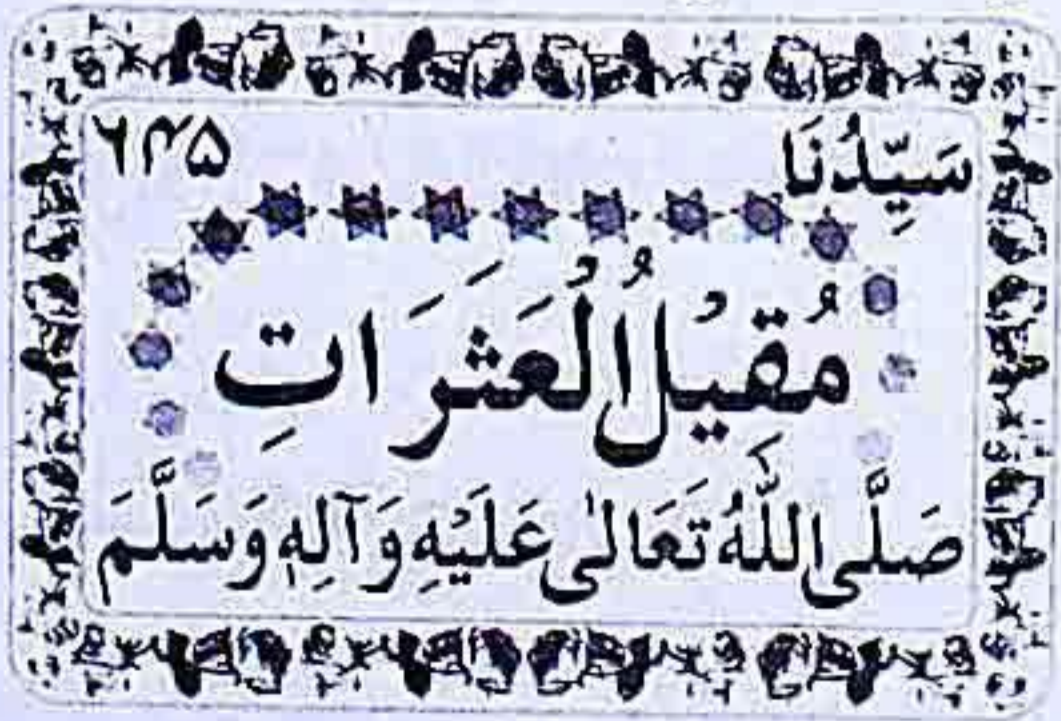 سَيِّدُنَا ۶۴۵
مُقِيْلُ الْعَثَرَاتِ
صَلَّى اللَّهُ تَعَالٰى عَلَيْهِ وَآلِهٖ وَسَلَّمَ